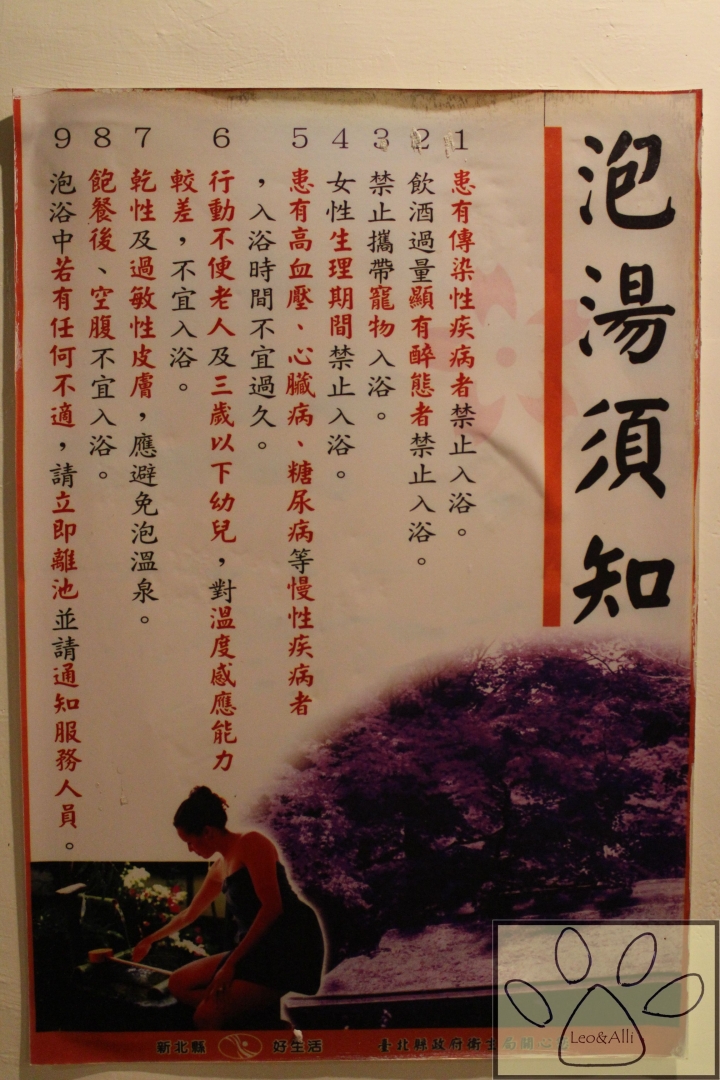 泡湯須知
1 患有傳染性疾病者禁止入浴。
2 飲酒過量顯有醉態者禁止入浴。
3 禁止攜帶寵物入浴。
4 女性生理期間禁止入浴。
5 患有高血壓、心臟病、糖尿病等慢性疾病者
，入浴時間不宜過久。
6 行動不便老人及三歲以下幼兒，對溫度感應能力
較差，不宜入浴。
7 乾性及過敏性皮膚，應避免泡溫泉。
8 飽餐後、空腹不宜入浴。
9 泡浴中若有任何不適，請立即離池並請通知服務人員。
新北縣 好生活
臺北縣政府衛生局關心您
Leo&Alli